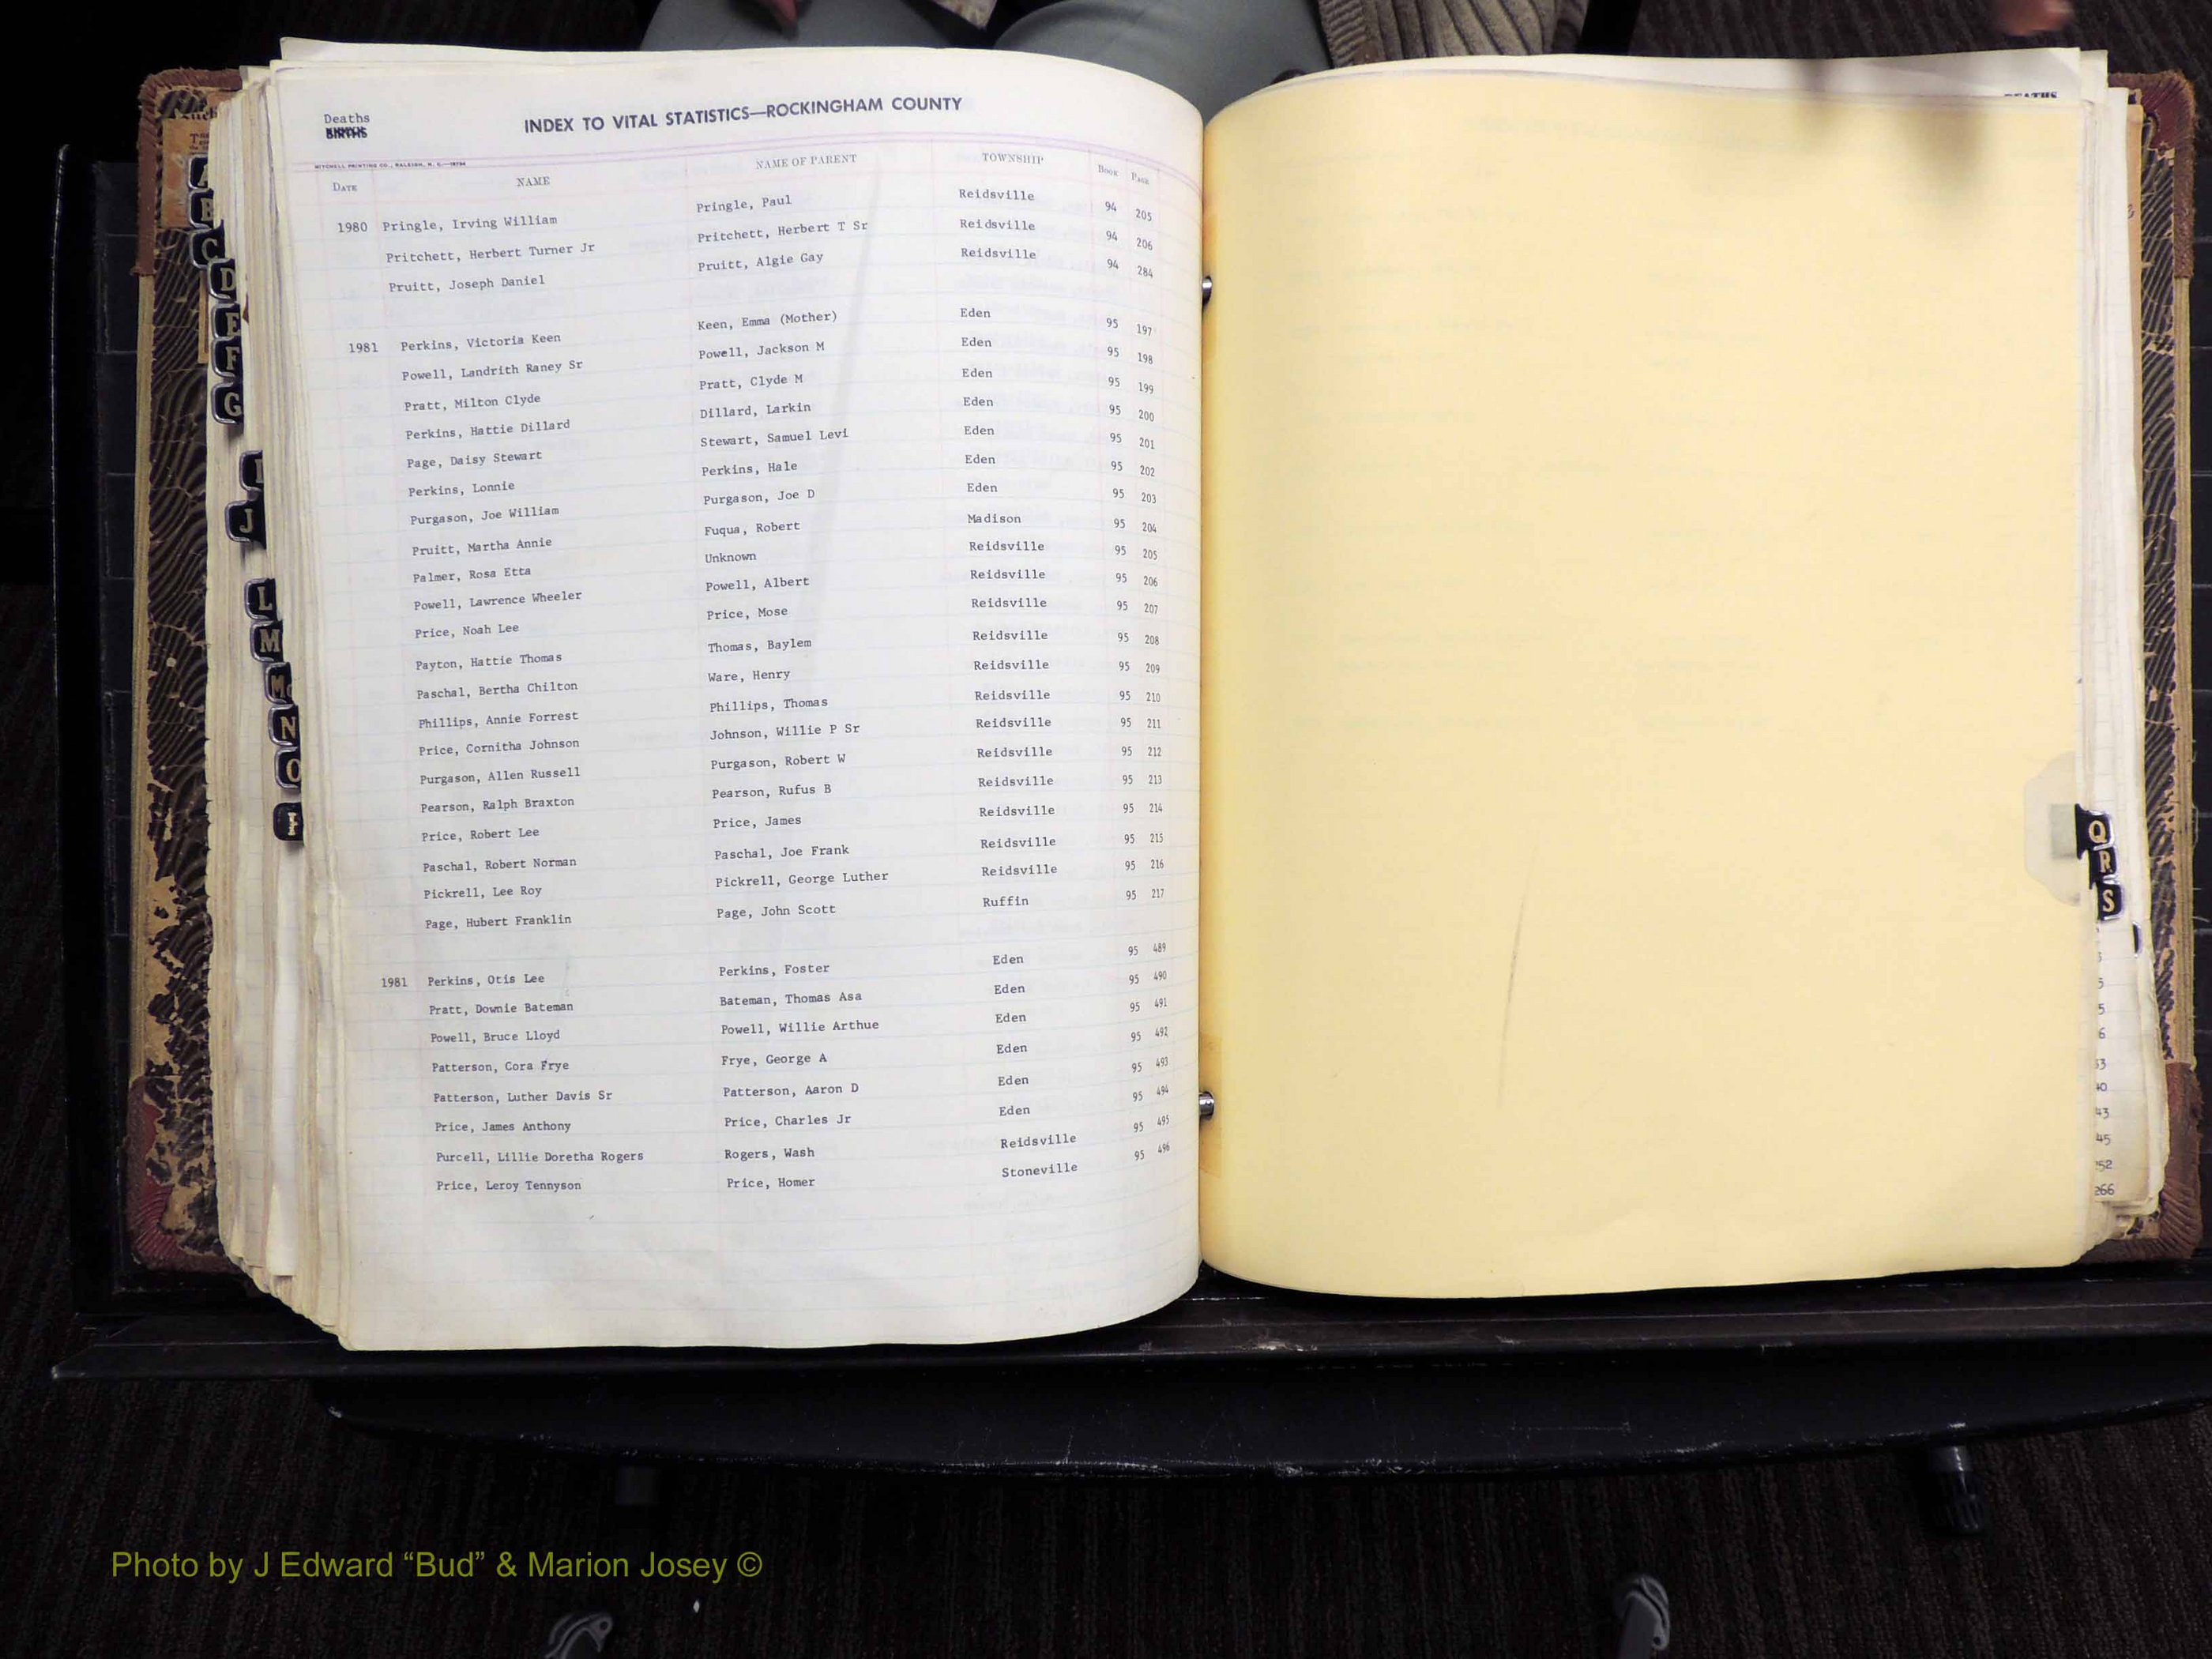 Deaths
BIRTHS
INDEX TO VITAL STATISTICS—ROCKINGHAM COUNTY
DEATHS
MITCHELL PRINTING CO., RALEIGH, N. C.
DATE NAME NAME OF PARENT TOWNSHIP BOOK PAGE
1980 Pringle, Irving William Pringle, Paul Reidsville 94 205
Pritchett, Herbert Turner Jr Pritchett, Herbert T Sr Reidsville 94 206
Pruitt, Joseph Daniel Pruitt, Algie Gay Reidsville 94 284
1981 Perkins, Victoria Keen Keen, Emma (Mother) Eden 95 197
Powell, Landrith Raney Sr Powell, Jackson M Eden 95 198
Pratt, Milton Clyde Pratt, Clyde M Eden 95 199
Perkins, Hattie Dillard Dillard, Larkin Eden 95 200
Page, Daisy Stewart Stewart, Samuel Levi Eden 95 201
Perkins, Lonnie Perkins, Hale Eden 95 202
Purgason, Joe William Purgason, Joe D Eden 95 203
Pruitt, Martha Annie Fuqua, Robert Madison 95 204
Palmer, Rosa Etta Unknown Reidsville 95 205
Powell, Lawrence Wheeler Powell, Albert Reidsville 95 206
Price, Noah Lee Price, Mose Reidsville 95 207
Payton, Hattie Thomas Thomas, Baylem Reidsville 95 208
Paschal, Bertha Chilton Ware, Henry Reidsville 95 209
Phillips, Annie Forrest Phillips, Thomas Reidsville 95 210
Price, Cornitha Johnson Johnson, Willie P Sr Reidsville 95 211
Purgason, Allen Russell Purgason, Robert W Reidsville 95 212
Pearson, Ralph Braxton Pearson, Rufus B Reidsville 95 213
Price, Robert Lee Price, James Reidsville 95 214
Paschal, Robert Norman Paschal, Joe Frank Reidsville 95 215
Pickrell, Lee Roy Pickrell, George Luther Reidsville 95 216
Page, Hubert Franklin Page, John Scott Ruffin 95 217
1981 Perkins, Otis Lee Perkins, Foster Eden 95 489
Pratt, Downie Bateman Bateman, Thomas Asa Eden 95 490
Powell, Bruce Lloyd Powell, Willie Arthue Eden 95 491
Patterson, Cora Frye Frye, George A Eden 95 492
Patterson, Luther Davis Sr Patterson, Aaron D Eden 95 493
Price, James Anthony Price, Charles Jr Eden 95 494
Purcell, Lillie Doretha Rogers Rogers, Wash Reidsville 95 495
Price, Leroy Tennyson Price, Homer Stoneville 95 496
A
B
C
D
E
F
G
J
L
M
Mc
N
O
P
Q
R
S
5
5
6
43
45
52
266
Photo by J Edward “Bud” & Marion Josey ©